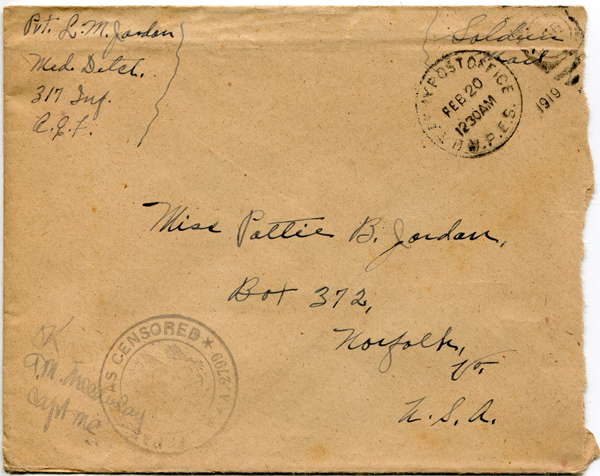 Pvt. L. M. Jordan
Med. Detch.
317 Inf.
A.E.F.
Soldiers
Mail
POST OFFICE
FEB 20
1230AM
M.P.E.S.
1919
Miss Pattie B. Jordan,
Box 372,
Norfolk,
Va.
U.S.A.
AS CENSORED
2799
OK
Capt MC